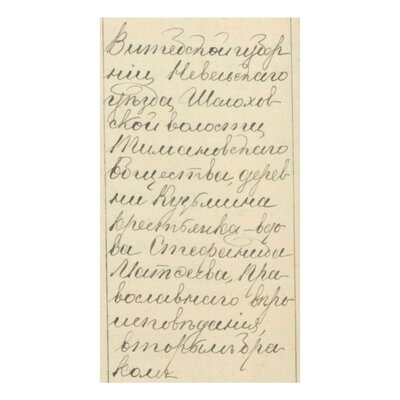 Витебской губер
ніи, Невельскаго
уѣзда, Шалохов
ской волости,
Тимановскаго
общества, дерев
ни Кузьмина
крестьянка-вдо
ва Стефанида
Матѳеева, Пра-
вославнаго вѣро
исповѣданія,
вторымъ бра-
комъ